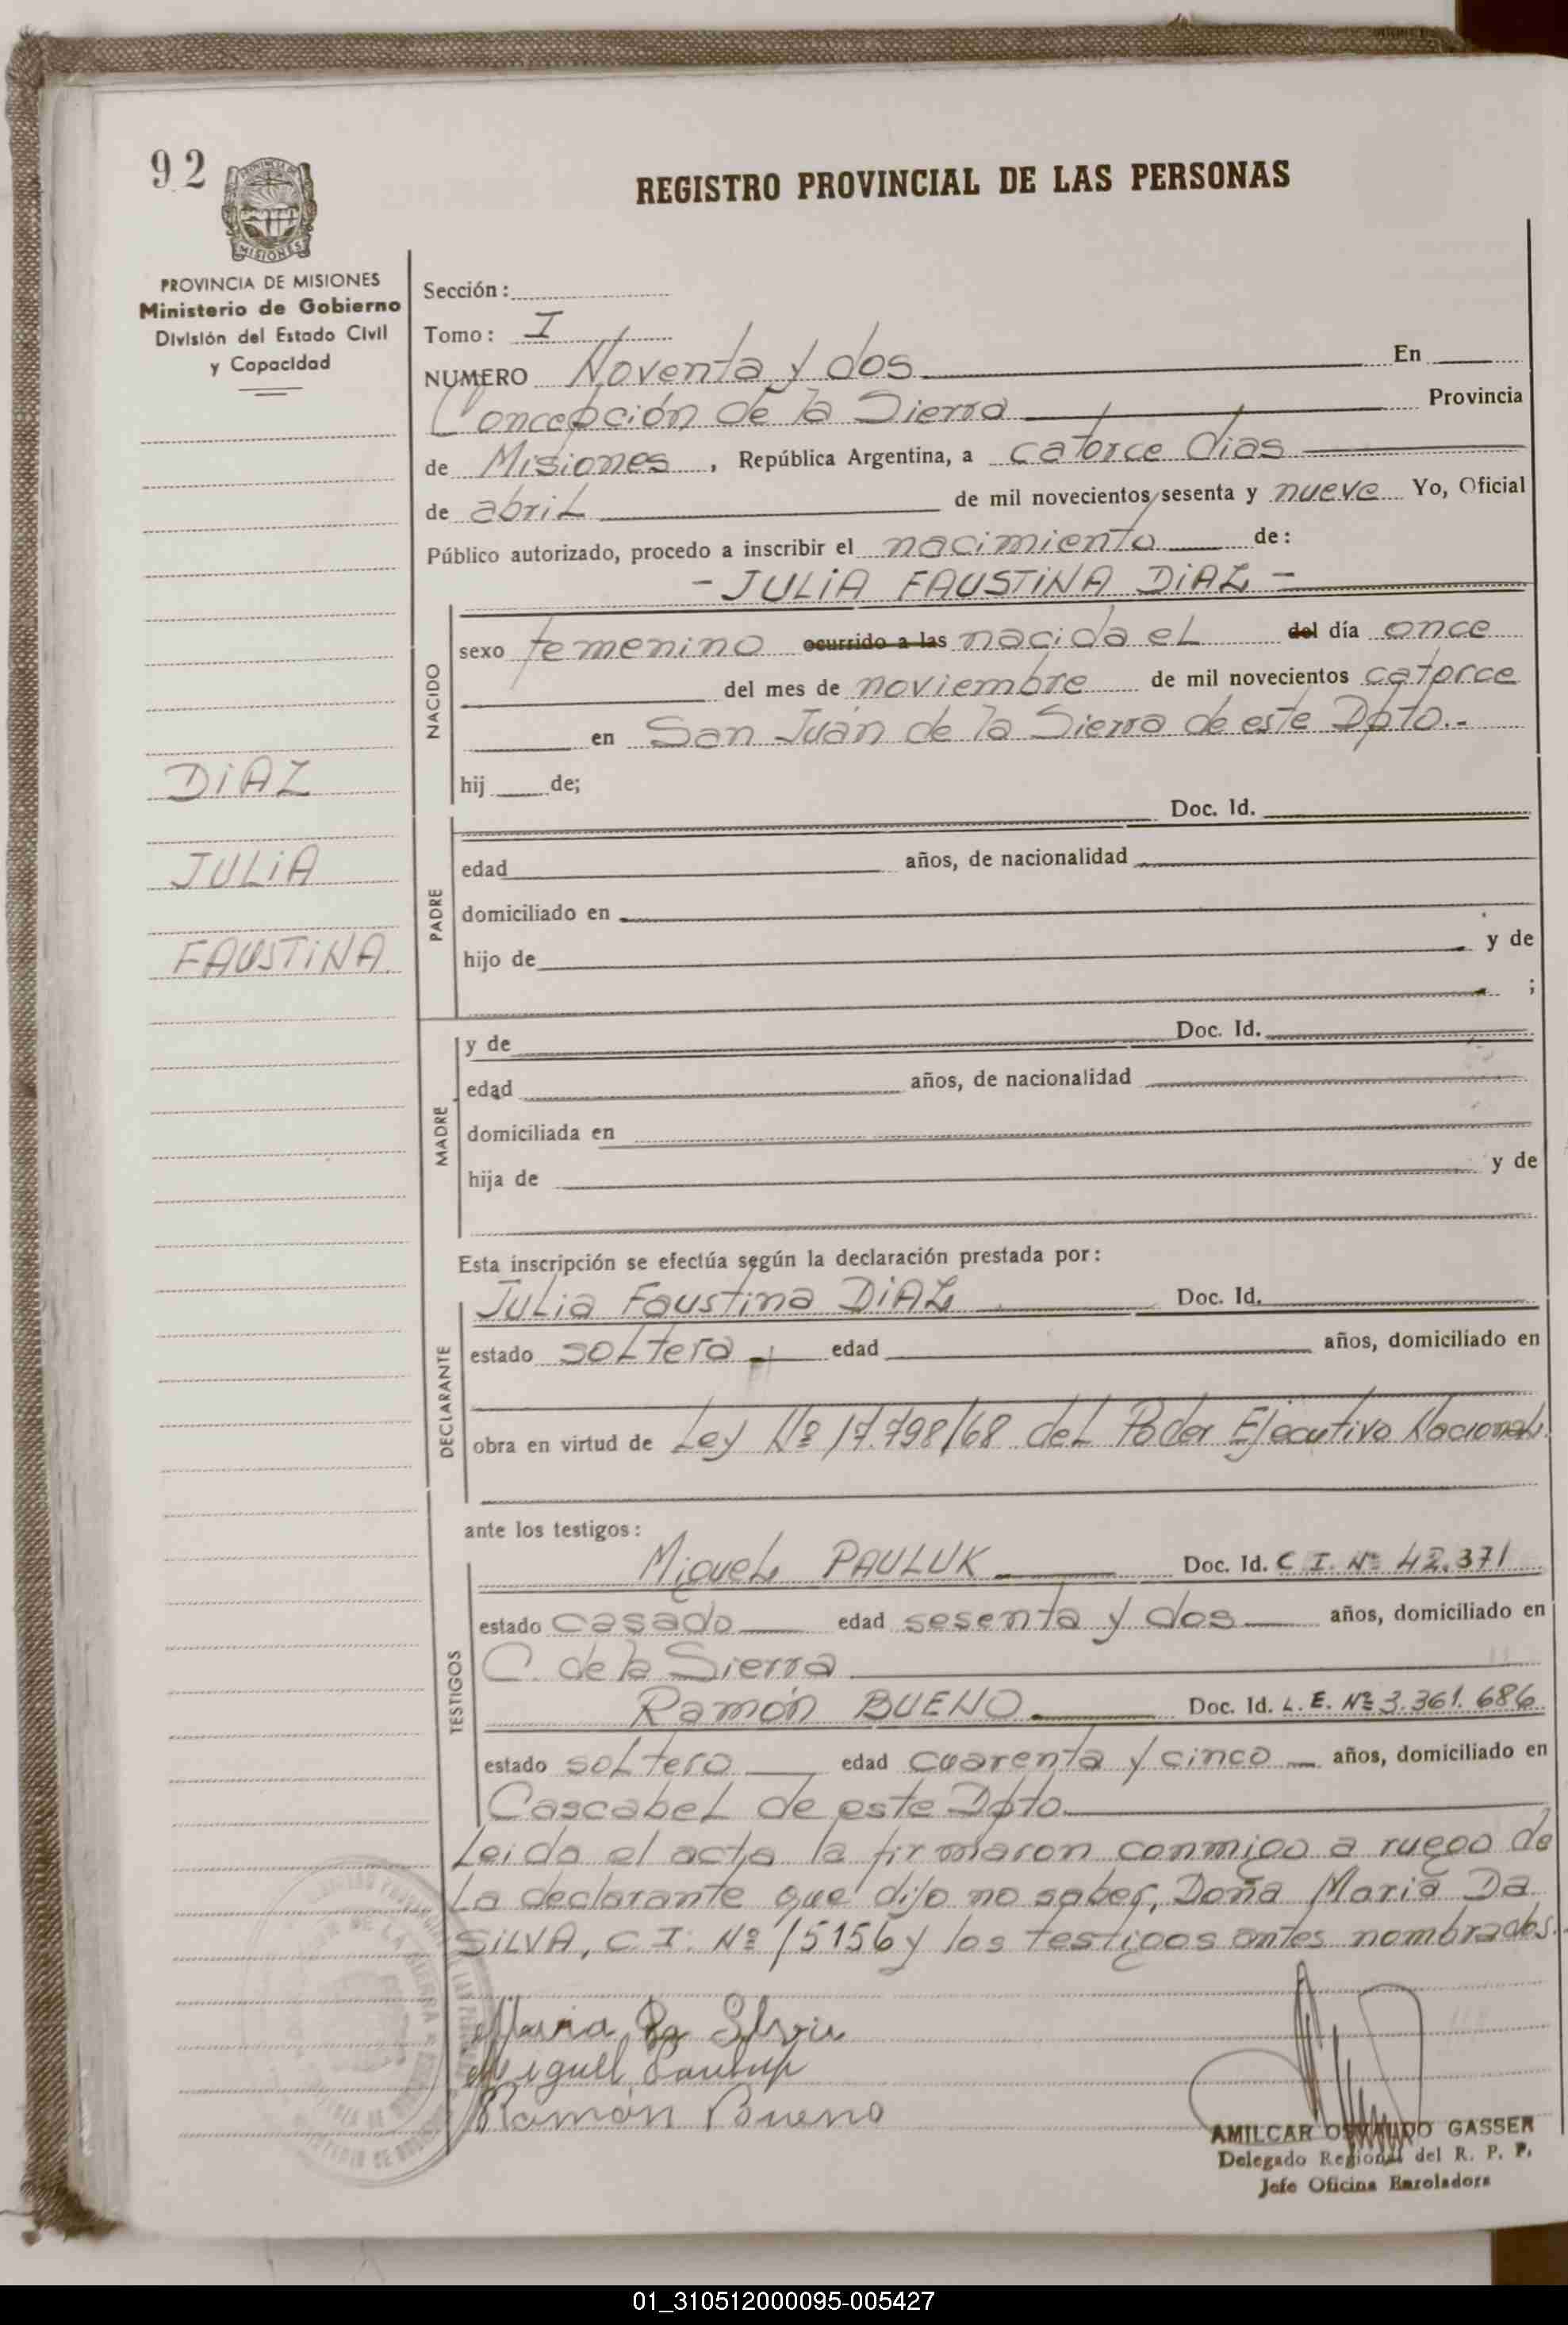 92
PROVINCIA DE MISIONES
Ministerio de Gobierno
División del Estado Civil
y Capacidad
DIAZ
JULIA
FAUSTINA
REGISTRO PROVINCIAL DE LAS PERSONAS
Sección:
Tomo: I
NUMERO Noventa y dos En
Concepción de la Sierra Provincia
de Misiones, República Argentina, a catorce dias
de abril de mil novecientos sesenta y nueve Yo, Oficial
Público autorizado, procedo a inscribir el nacimiento de:
- JULIA FAUSTINA DIAZ -
NACIDO
sexo femenino ocurrido a las nacida el del día once
del mes de noviembre de mil novecientos catorce
en San Juan de la Sierra de este Dpto.-
hij de;
PADRE
Doc. Id.
edad años, de nacionalidad
domiciliado en
hijo de y de
;
MADRE
y de Doc. Id.
edad años, de nacionalidad
domiciliada en
hija de y de
Esta inscripción se efectúa según la declaración prestada por:
DECLARANTE
Julia Faustina DIAZ Doc. Id.
estado soltera edad años, domiciliado en
obra en virtud de Ley Nº 17.798/68 del Poder Ejecutivo Nacional.
TESTIGOS
ante los testigos:
Miguel PAULUK Doc. Id. C. I. Nº 42.371
estado casado edad sesenta y dos años, domiciliado en
C. de la Sierra
Ramón BUENO Doc. Id. L. E. Nº 3.361.686
estado soltero edad cuarenta y cinco años, domiciliado en
Cascabel de este Dpto.
Leida el acta la firmaron conmigo a ruego de
la declarante que dijo no saber, Doña Maria Da
SILVA, C. I. Nº 15156 y los testigos antes nombrados.
Maria Da Silva
Miguel Pauluk
Ramón Bueno
AMILCAR OSVALDO GASSER
Delegado Regional del R. P. P.
Jefe Oficina Enroladora
01_310512000095-005427